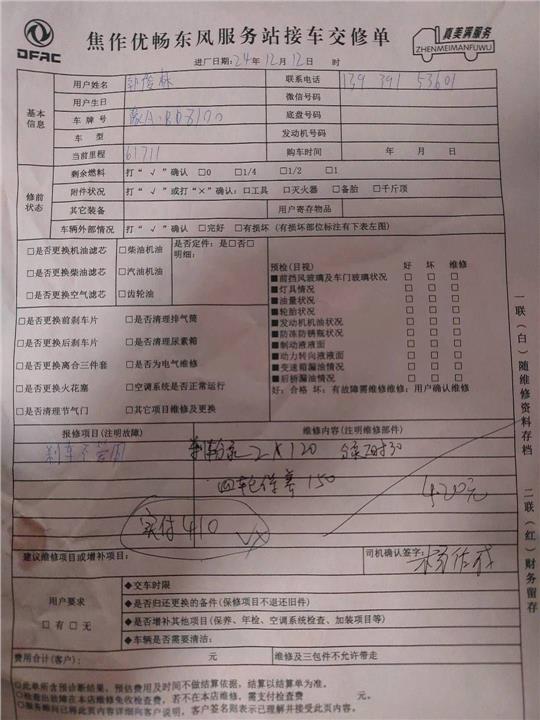 DFAC 焦作优畅东风服务站接车交修单 真美满服务
ZHENMEIMANFUWU
进厂日期: 24年12月12日 时
基本信息
用户姓名 联系电话 139 391 53601
用户生日 微信号码
车牌号 底盘号码
车型 发动机号码
当前里程 61711 购车时间 年 月 日
修前状态
剩余燃料 打“√”确认 □0 □1/4 □1/2 □1
附件状况 打“√”或打“×”确认:□工具 □灭火器 □备胎 □千斤顶
其它装备 用户寄存物品
车辆外部情况 打“√”确认 □完好 □有损坏 (有损坏部位标注有下表左图)
□是否更换机油滤芯 □柴油机油 是否定件:是□否□
明细:
□是否更换柴油滤芯 □汽油机油
□是否更换空气滤芯 □齿轮油
□是否更换前刹车片 □是否清理排气筒
□是否更换后刹车片 □是否清理尿素箱
□是否更换离合三件套 □是否为电气维修
□是否更换火花塞 □空调系统是否正常运行
□是否清理节气门 □其它项目维修及更换
预检(目视) 好 坏 维修
■前挡风玻璃及车门玻璃状况 □ □ □
■灯具情况 □ □ □
■油量状况 □ □ □
■轮胎状况 □ □ □
■发动机机油状况 □ □ □
■防冻防锈瓶状况 □ □ □
■制动液液面 □ □ □
■动力转向液液面 □ □ □
■变速箱漏油情况 □ □ □
■后桥漏油情况 □ □ □
好:合格 坏:有故障需维修维修:用户确认维修
报修项目(注明故障) 维修内容(注明维修部件)
刹车不管用 2×120
四轮保养 150
420元
实付410
建议维修项目或增补项目: 司机确认签字:
用户要求
□有□无
◆交车时限
◆是否归还更换的备件(保修项目不退还旧件)
◆是否增补其他项目(保养、年检、空调系统检查、加装项目等)
◆车辆是否需要清洁:
费用合计(客户): 元 维修及三包件不允许带走
◎此单含所含预诊断结果,预估费用及时间不做结算依据,结算以结算单为准。
◎检查出故障在本店维修免收检查费,若不在本店维修,需支付检查费 元。
◎服务顾问已将此页内容详细向客户说明,客户签名则表示已理解并接受此页内容。
一联(白)随维修资料存档
二联(红)财务留存